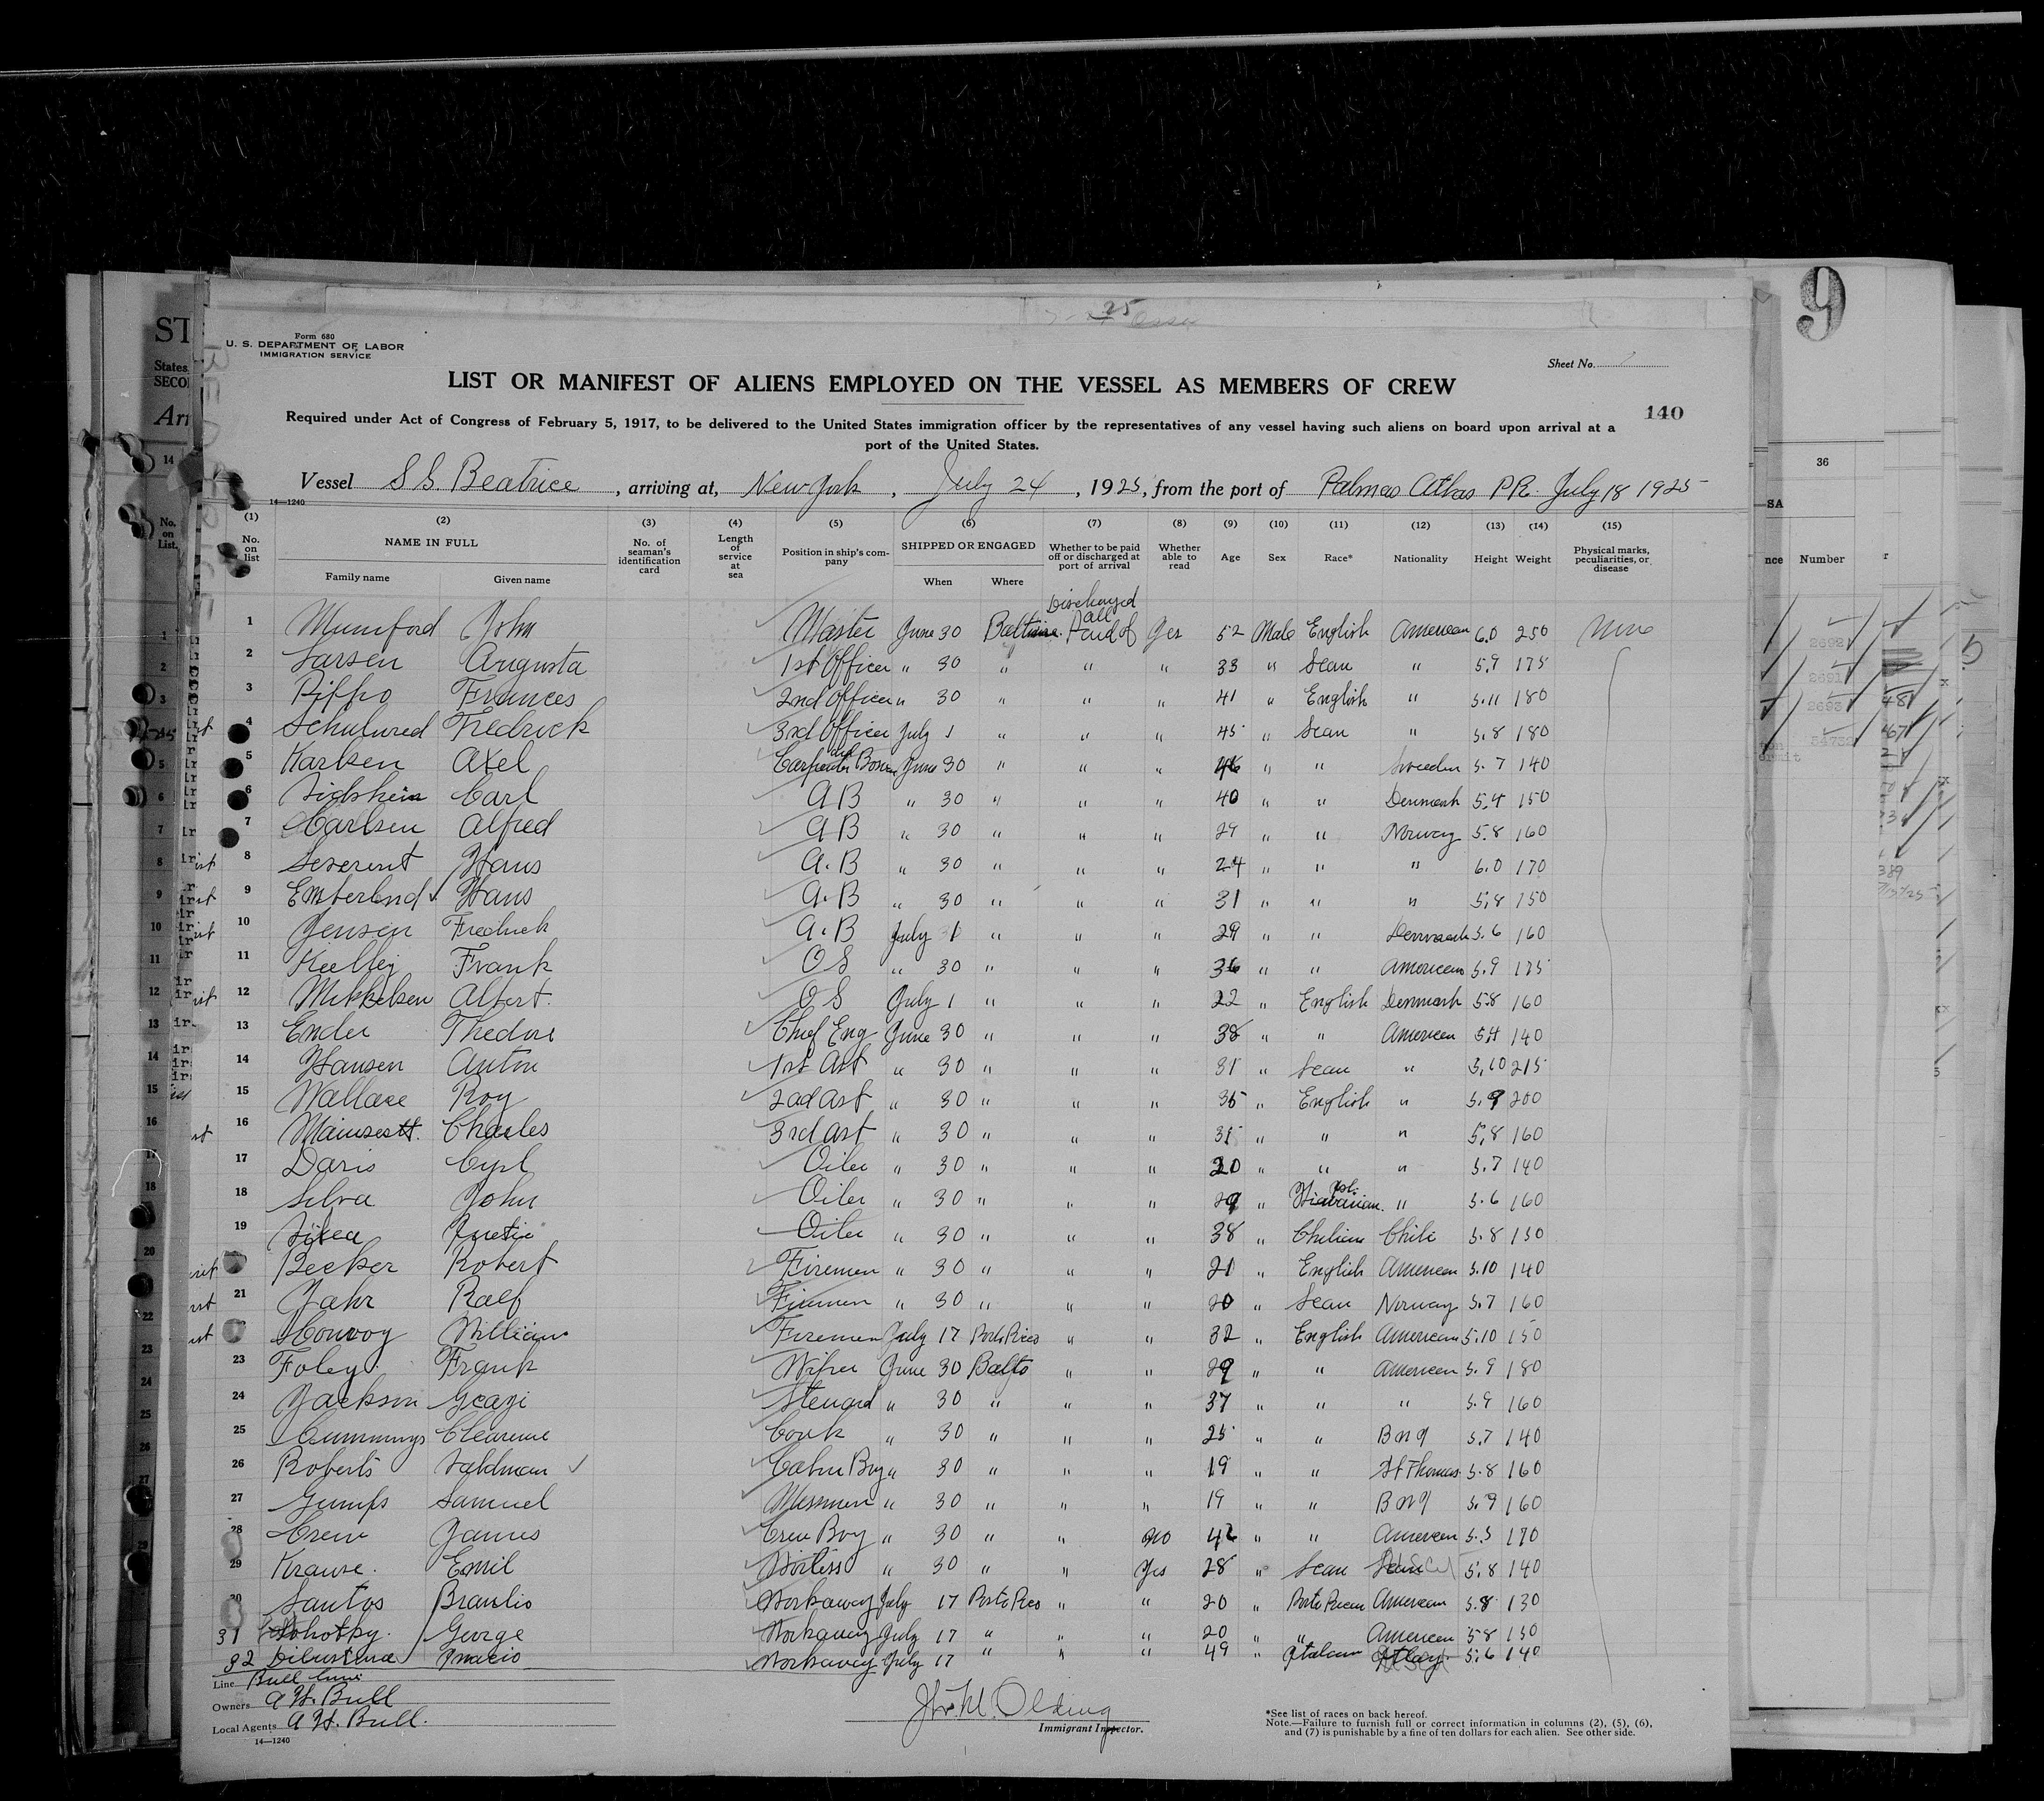 9
25
Form 680
U. S. DEPARTMENT OF LABOR
IMMIGRATION SERVICE
Sheet No.
LIST OR MANIFEST OF ALIENS EMPLOYED ON THE VESSEL AS MEMBERS OF CREW
140
Required under Act of Congress of February 5, 1917, to be delivered to the United States immigration officer by the representatives of any vessel having such aliens on board upon arrival at a
port of the United States.
Vessel S S. Beatrice, arriving at, New York, July 24, 1925, from the port of Palmas P R. July 18 1925
14—1240
(1) (2) (3) (4) (5) (6) (7) (8) (9) (10) (11) (12) (13) (14) (15)
No. on list NAME IN FULL Family name Given name No. of seaman's identification card Length of service at sea Position in ship's company SHIPPED OR ENGAGED When Where Whether to be paid off or discharged at port of arrival Whether able to read Age Sex Race* Nationality Height Weight Physical marks, peculiarities, or disease
Discharged
1 Mumford John Master June 30 all Paid of yes 52 Male English American 6.0 250 None
2 Larsen Augusta 1st Officer " 30 " " " 33 " Scan " 5.9 175
3 Frances 2nd Officer " 30 " " " 41 " English " 5.11 180
4 Fredrick 3rd Officer July 1 " " " 45 " Scan " 5.8 180
5 Karlsen Axel Carpenter and Bosun June 30 " " " 46 " " Sweeden 5.7 140
6 Carl A B " 30 " " " 40 " " Denmark 5.4 150
7 Carlsen Alfred A B " 30 " " " 29 " " Norway 5.8 160
8 Hans A. B " 30 " " " 24 " " " 6.0 170
9 Emberlend Hans A. B " 30 " " " 31 " " " 5.8 150
10 Jensen Fredrick A. B July 1 " " " 29 " " Denmark 5.6 160
11 Kielley Frank O S " 30 " " " 36 " " American 5.9 175
12 Mikkelsen Albert. O S July 1 " " " 22 " English Denmark 5.8 160
13 Ender Thedore Chief Eng June 30 " " " 38 " " American 5.4 140
14 Hansen Anton 1st Ast " 30 " " " 31 " Scan " 5.10 215
15 Wallace Roy 2nd Ast " 30 " " " 35 " English " 5.9 200
16 Charles 3rd Ast " 30 " " " 31 " " " 5.8 160
17 Davis Cyrl Oiler " 30 " " " 20 " " " 5.7 140
18 Silva John Oiler " 30 " " " 29 " Hiawaiian. " 5.6 160
19 Oiler " 30 " " " 38 " Chilian Chili 5.8 150
Becker Robert Firemen " 30 " " " 21 " English American 5.10 140
21 Jahr Ralf Firemen " 30 " " " 20 " Scan Norway 5.7 160
Conroy William Firemen July 17 Porto Rico " " 32 " English American 5.10 150
23 Foley Frank Wiper June 30 Balto " " 29 " " American 5.9 180
24 Jackson Steward " 30 " " " 37 " " " 5.9 160
25 Cummings Clearence Cook " 30 " " " 25 " " B W I 5.7 140
26 Roberts Cabin Boy " 30 " " " 19 " " St Thomas. 5.8 160
27 Gumbs Samuel Messman " 30 " " " 19 " " B W I 5.9 160
28 Crew James Crew Boy " 30 " " no 42 " " American 5.5 170
29 Krause. Emil " 30 " " Yes 28 " Scan 5.8 140
30 Santos Braulio Workaway July 17 Porto Rico " " 20 " Porto Rican American 5.8 130
31 George Workaway July 17 " " " 20 " " American 5.8 150
32 Workaway July 17 " " " 49 " Italian Italy. 5.6 140
Line Bull Line
Owners A H. Bull
Local Agents A H. Bull.
14—1240
Jno. M. Olding
Immigrant Inspector.
*See list of races on back hereof.
Note.—Failure to furnish full or correct information in columns (2), (5), (6),
and (7) is punishable by a fine of ten dollars for each alien. See other side.
36
SA
nce Number